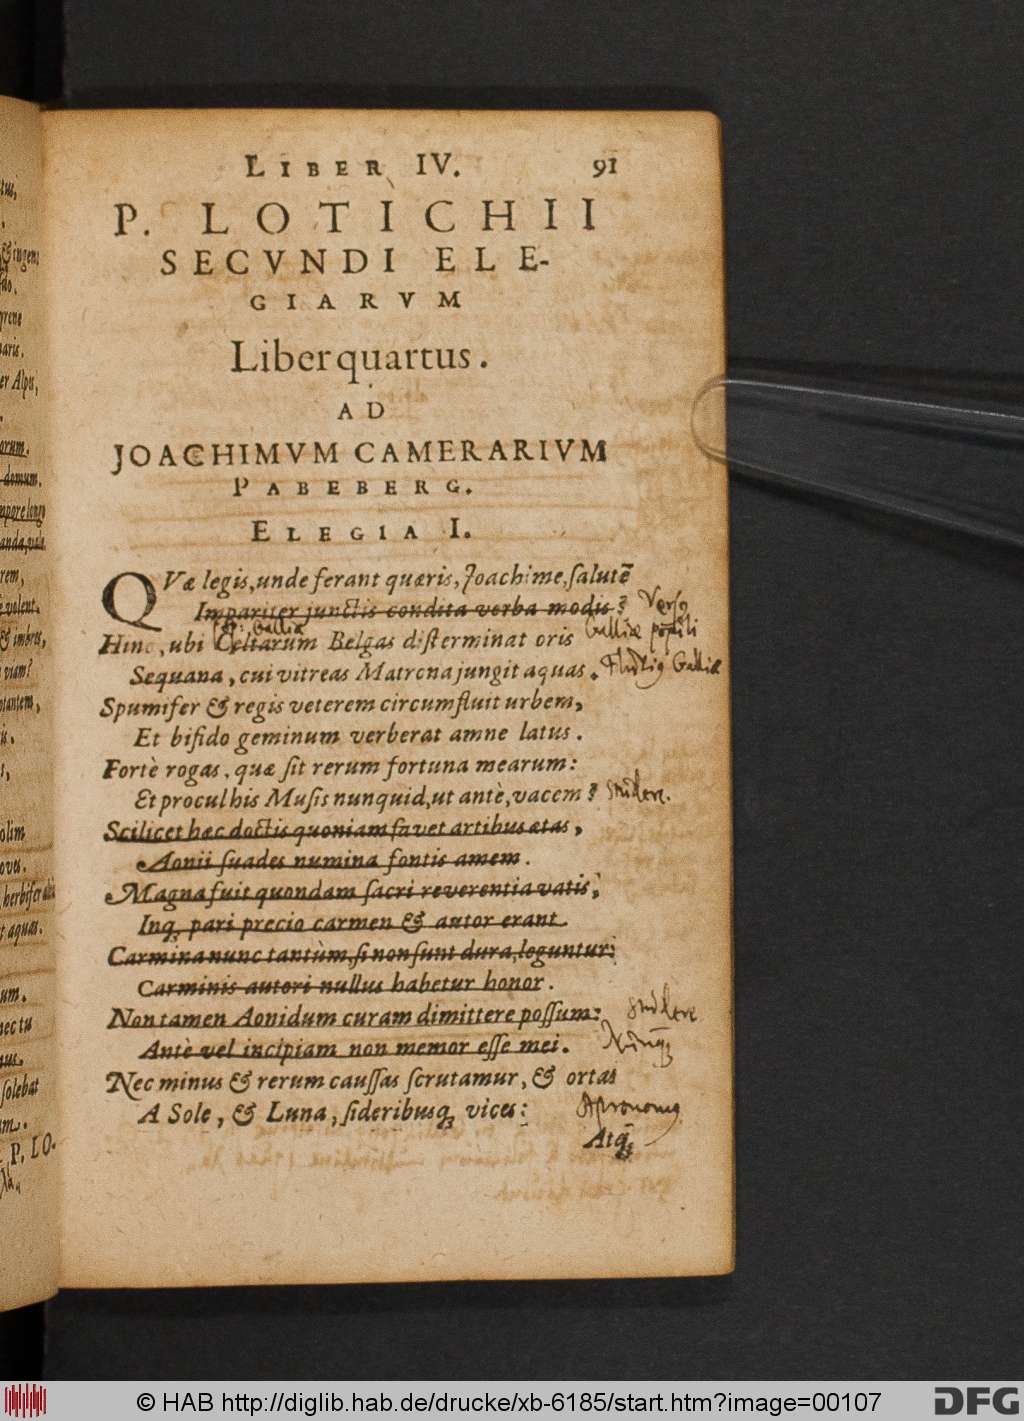 LIBER IV. 91
P. LOTICHII
SECVNDI ELE-
GIARVM
Liber quartus.
AD
JOACHIMVM CAMERARIVM
PABEBERG.
ELEGIA I.
QVæ legis, unde ferant quæris, Joachime, salutē
Impariter junctis condita verba modis? Versq
Gallia
Hinc, ubi Celtarum Belgas disterminat oris Galliæ populi
Sequana, cui vitreas Matrona jungit aquas. Galliæ
Spumifer & regis veterem circumfluit urbem,
Et bifido geminum verberat amne latus.
Fortè rogas, quæ sit rerum fortuna mearum:
Et procul his Musis nunquid, ut antè, vacem? studere.
Scilicet hæc doctis quoniam favet artibus ætas,
Aonii suades numina fontis amem.
Magna fuit quondam sacri reverentia vatis,
Inq; pari precio carmen & autor erant.
Carmina nunc tantùm, si non sunt dura, leguntur:
Carminis autori nullus habetur honor.
Non tamen Aonidum curam dimittere possum: studere
Antè vel incipiam non memor esse mei. Nunq;
Nec minus & rerum caussas scrutamur, & ortas
A Sole, & Luna, sideribusq; vices:
Atq;
tus,
& ingens
prene
aris.
er Alpes,
orum.
domum.
mpore longo
anda, vale.
rem,
volent.
& imbres,
viam?
olim
oves.
herbifer
t aquas.
um.
nec tu
solebat
P. LO-
© HAB http://diglib.hab.de/drucke/xb-6185/start.htm?image=00107
DFG